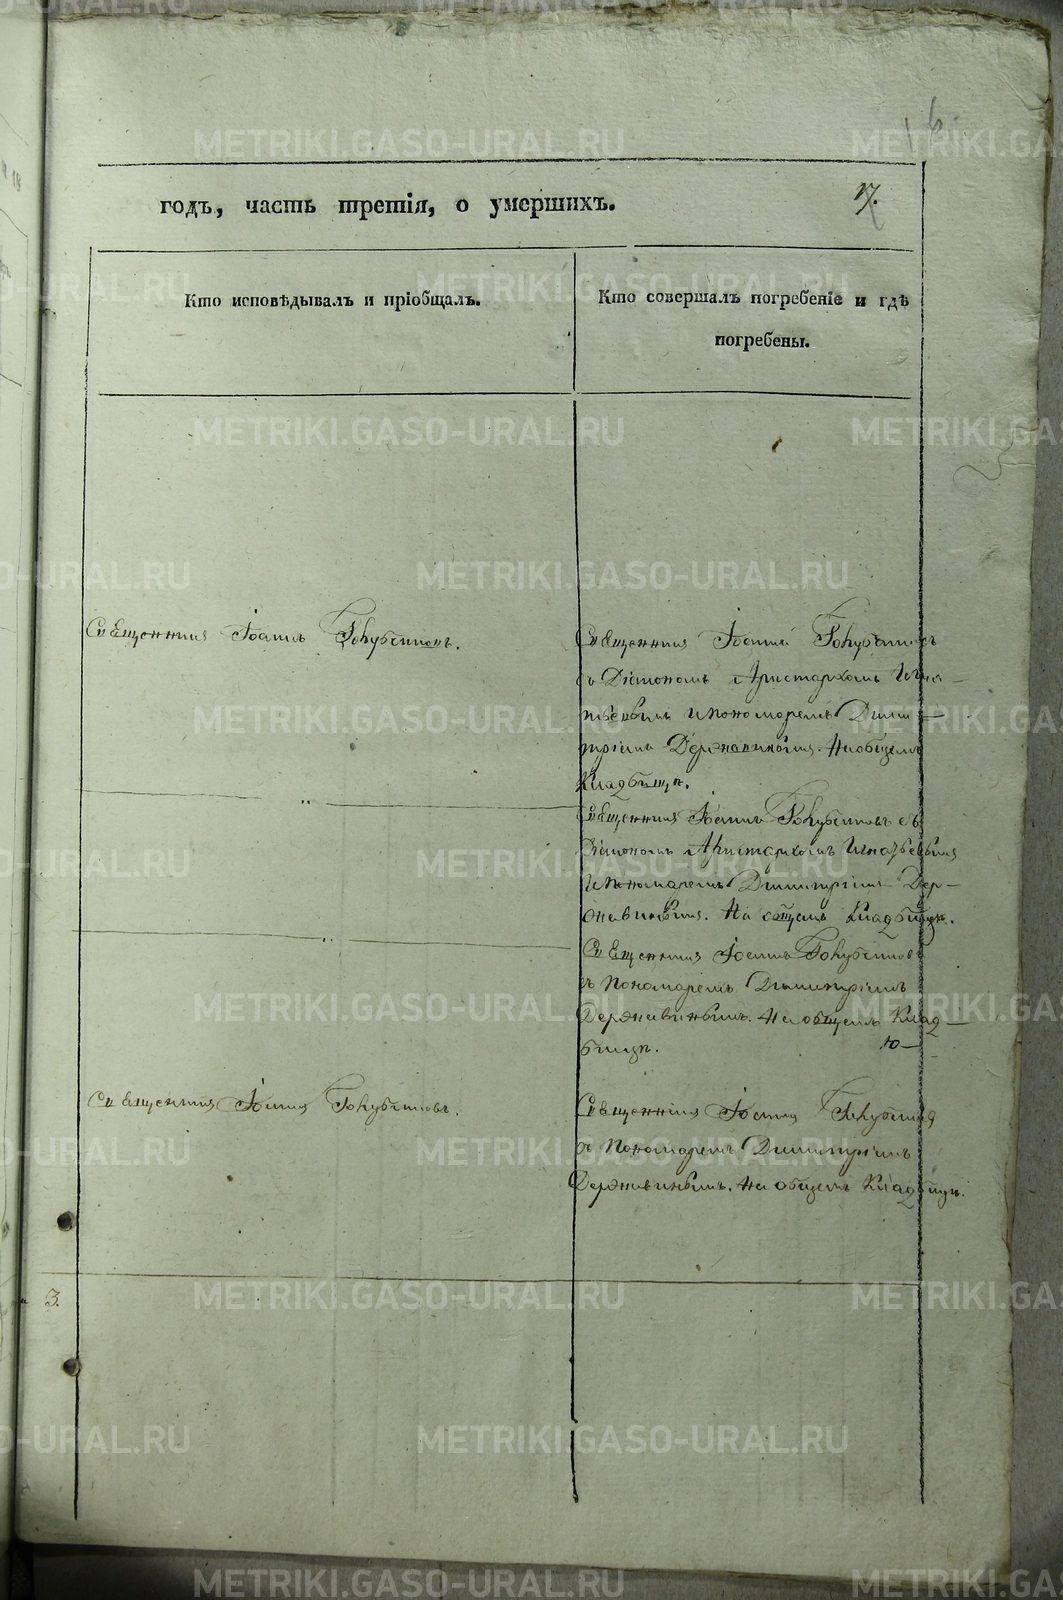 годъ, часть третія, о умершихъ.
17.
Кто исповѣдывалъ и пріобщалъ.
Кто совершалъ погребеніе и гдѣ
погребены.
Священникъ Іоаннъ Голубчиковъ.
Священникъ Іоаннъ Голубчиковъ
съ Діакономъ Аристархомъ Игна-
тьевымъ и пономаремъ Дими-
тріемъ Державинымъ. На общемъ
Кладбищѣ.
Священникъ Іоаннъ Голубчиковъ съ
Діакономъ Аристархомъ Игнатьевымъ
и Пономаремъ Димитріемъ Дер-
жавинымъ. На общемъ Кладбищѣ.
Священникъ Іоаннъ Голубчиковъ
съ Пономаремъ Димитріемъ
Державинымъ. На общемъ Клад-
бищѣ.
Священникъ Іоаннъ Голубчиковъ.
Священникъ Іоаннъ Голубчиковъ
съ Пономаремъ Димитріемъ
Державинымъ. На общемъ Кладбищѣ.
3.
METRIKI.GASO-URAL.RU